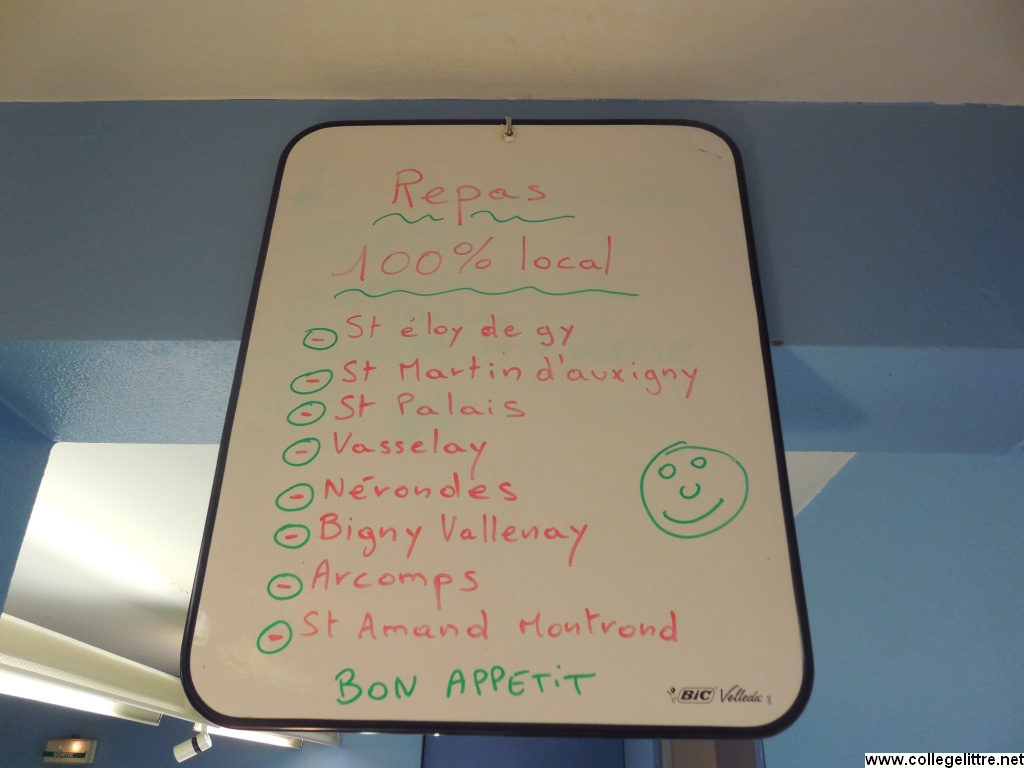 Repas
100% local
- St éloy de gy
- St Martin d'auxigny
- St Palais
- Vasselay
- Nérondes
- Bigny Vallenay
- Arcomps
- St Amand Montrond
BON APPETIT
BIC Velleda
SORTIE
www.collegelittre.net